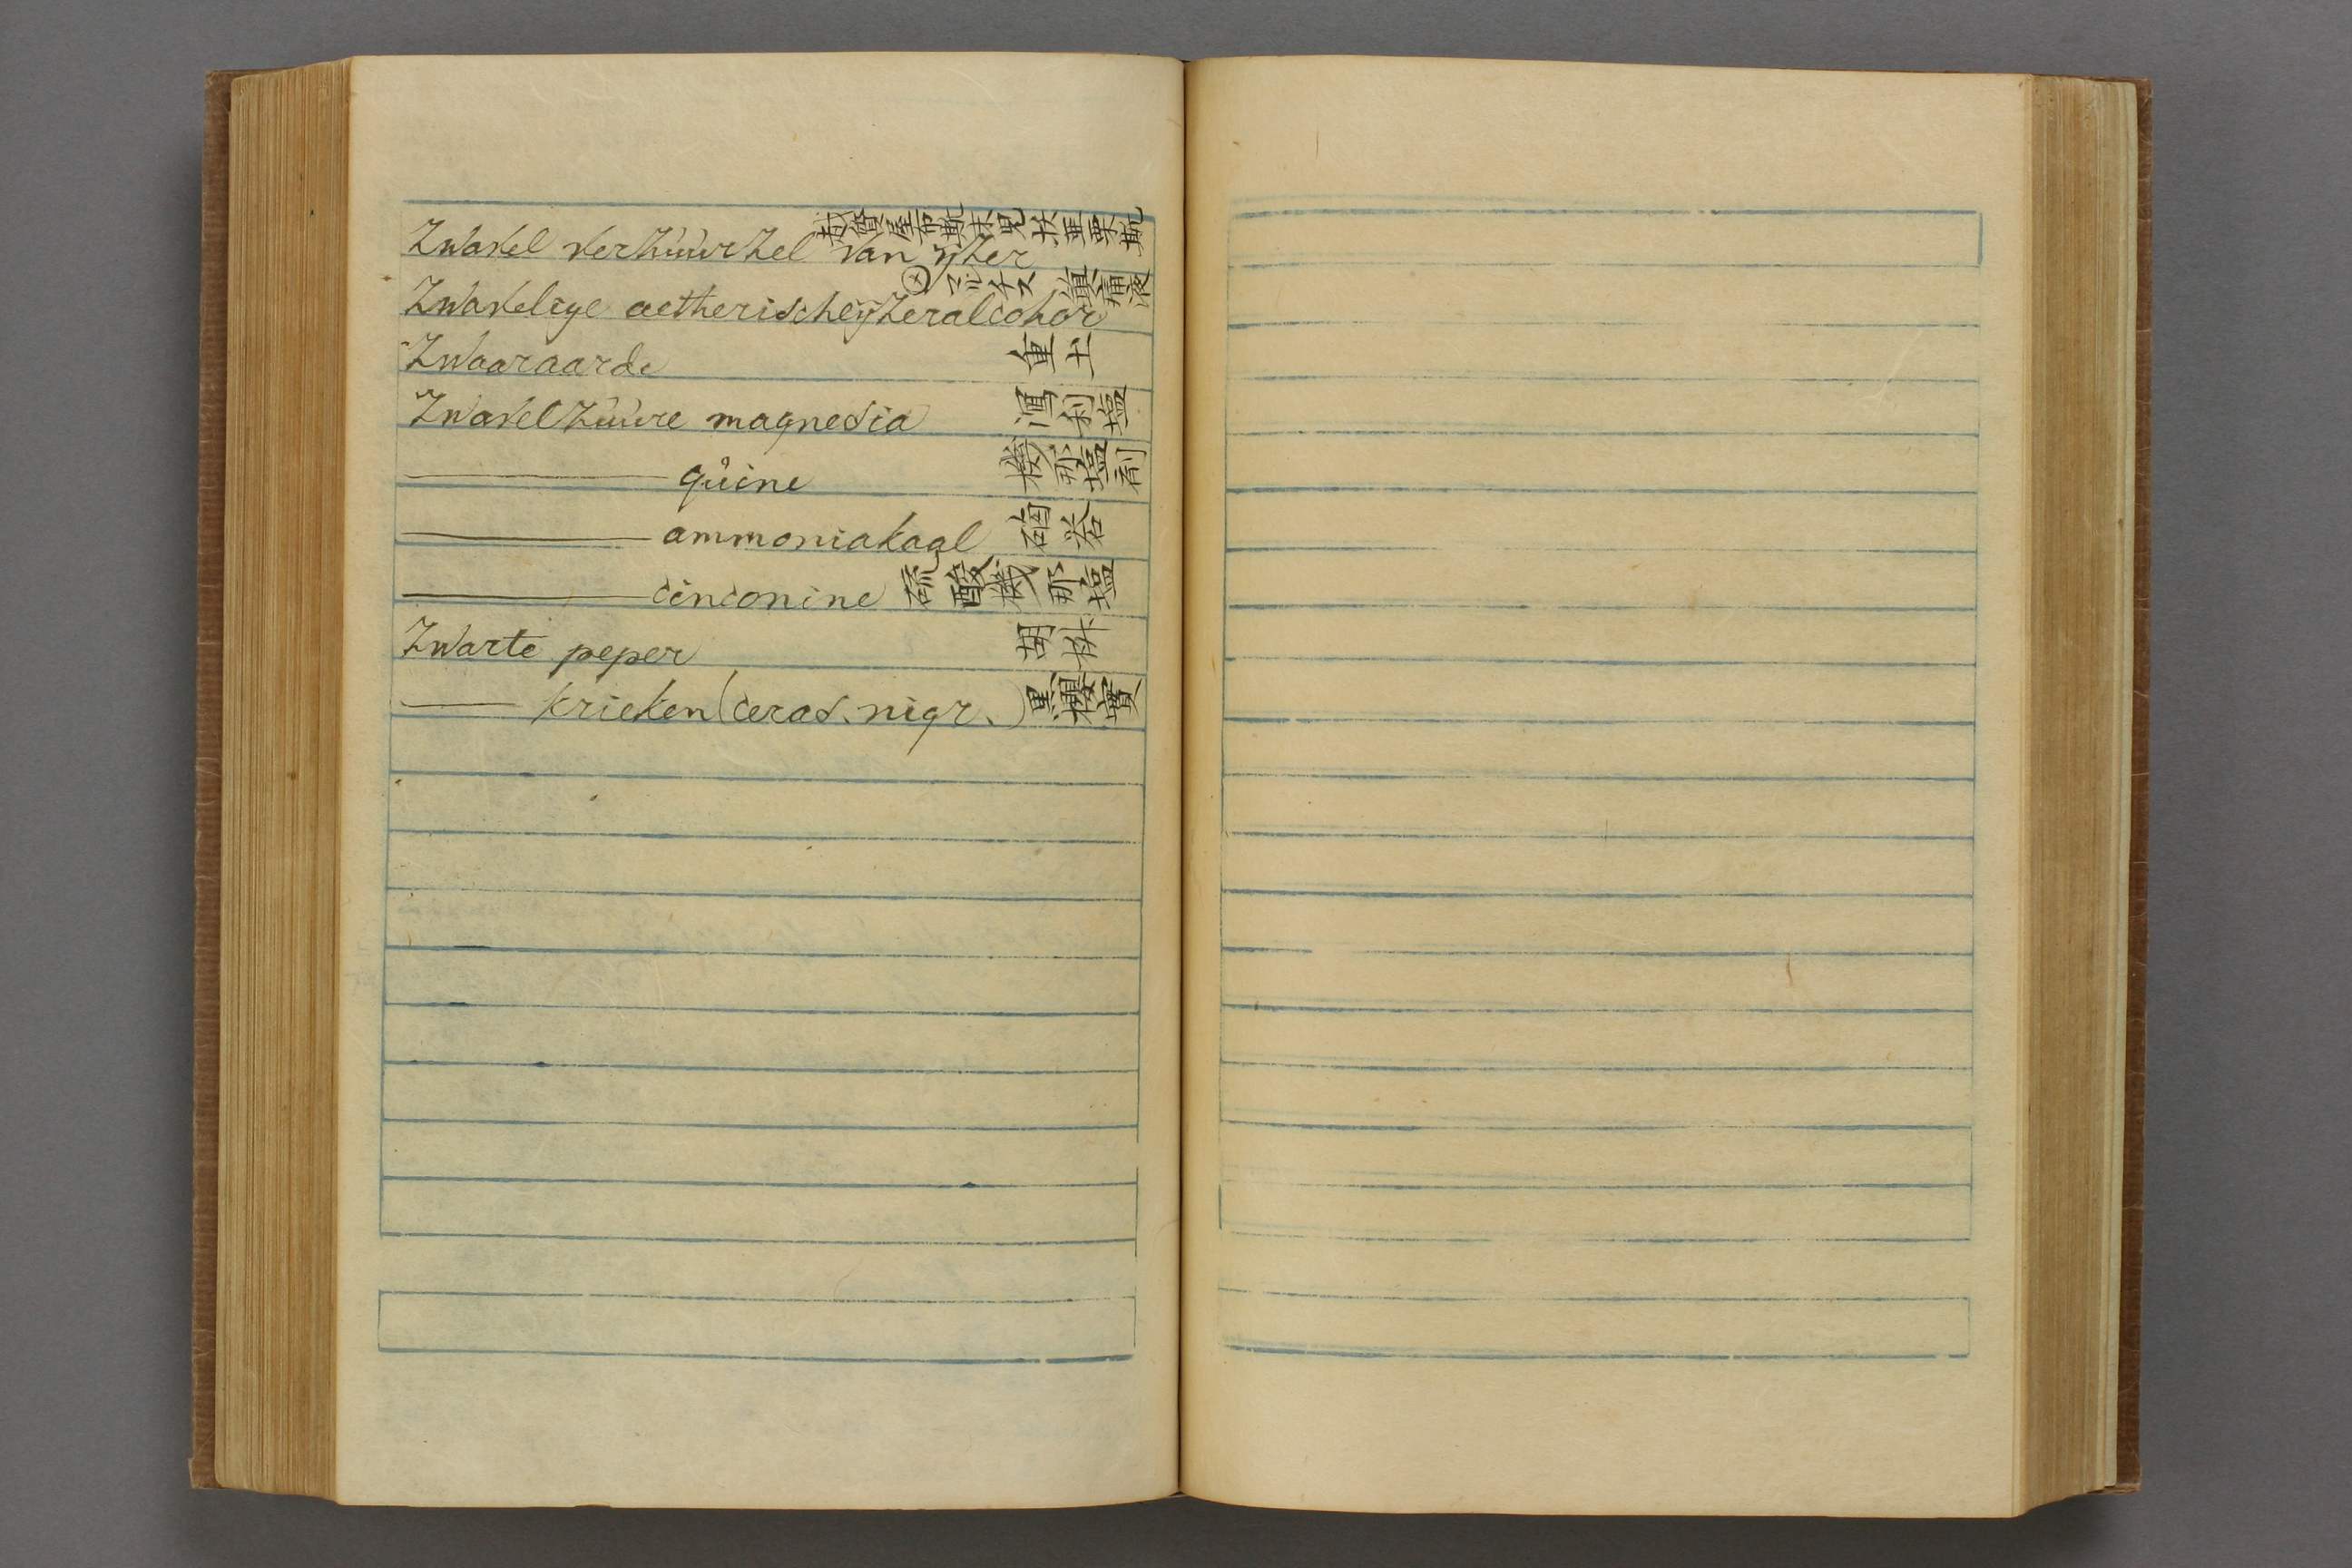 Zwavel verzuurzel van ijzer
Zwavelige aetherische ijzeralcohol ㋱ マルチス 鎮痛液
Zwaaraarde 重土
Zwavelzuure magnesia 瀉利塩
——— quine 機那塩剤
——— ammoniakaal 硇
——— cinconine 硫酸機那塩
Zwarte peper 胡椒
—— krieken (ceras. nigr.) 黒櫻實